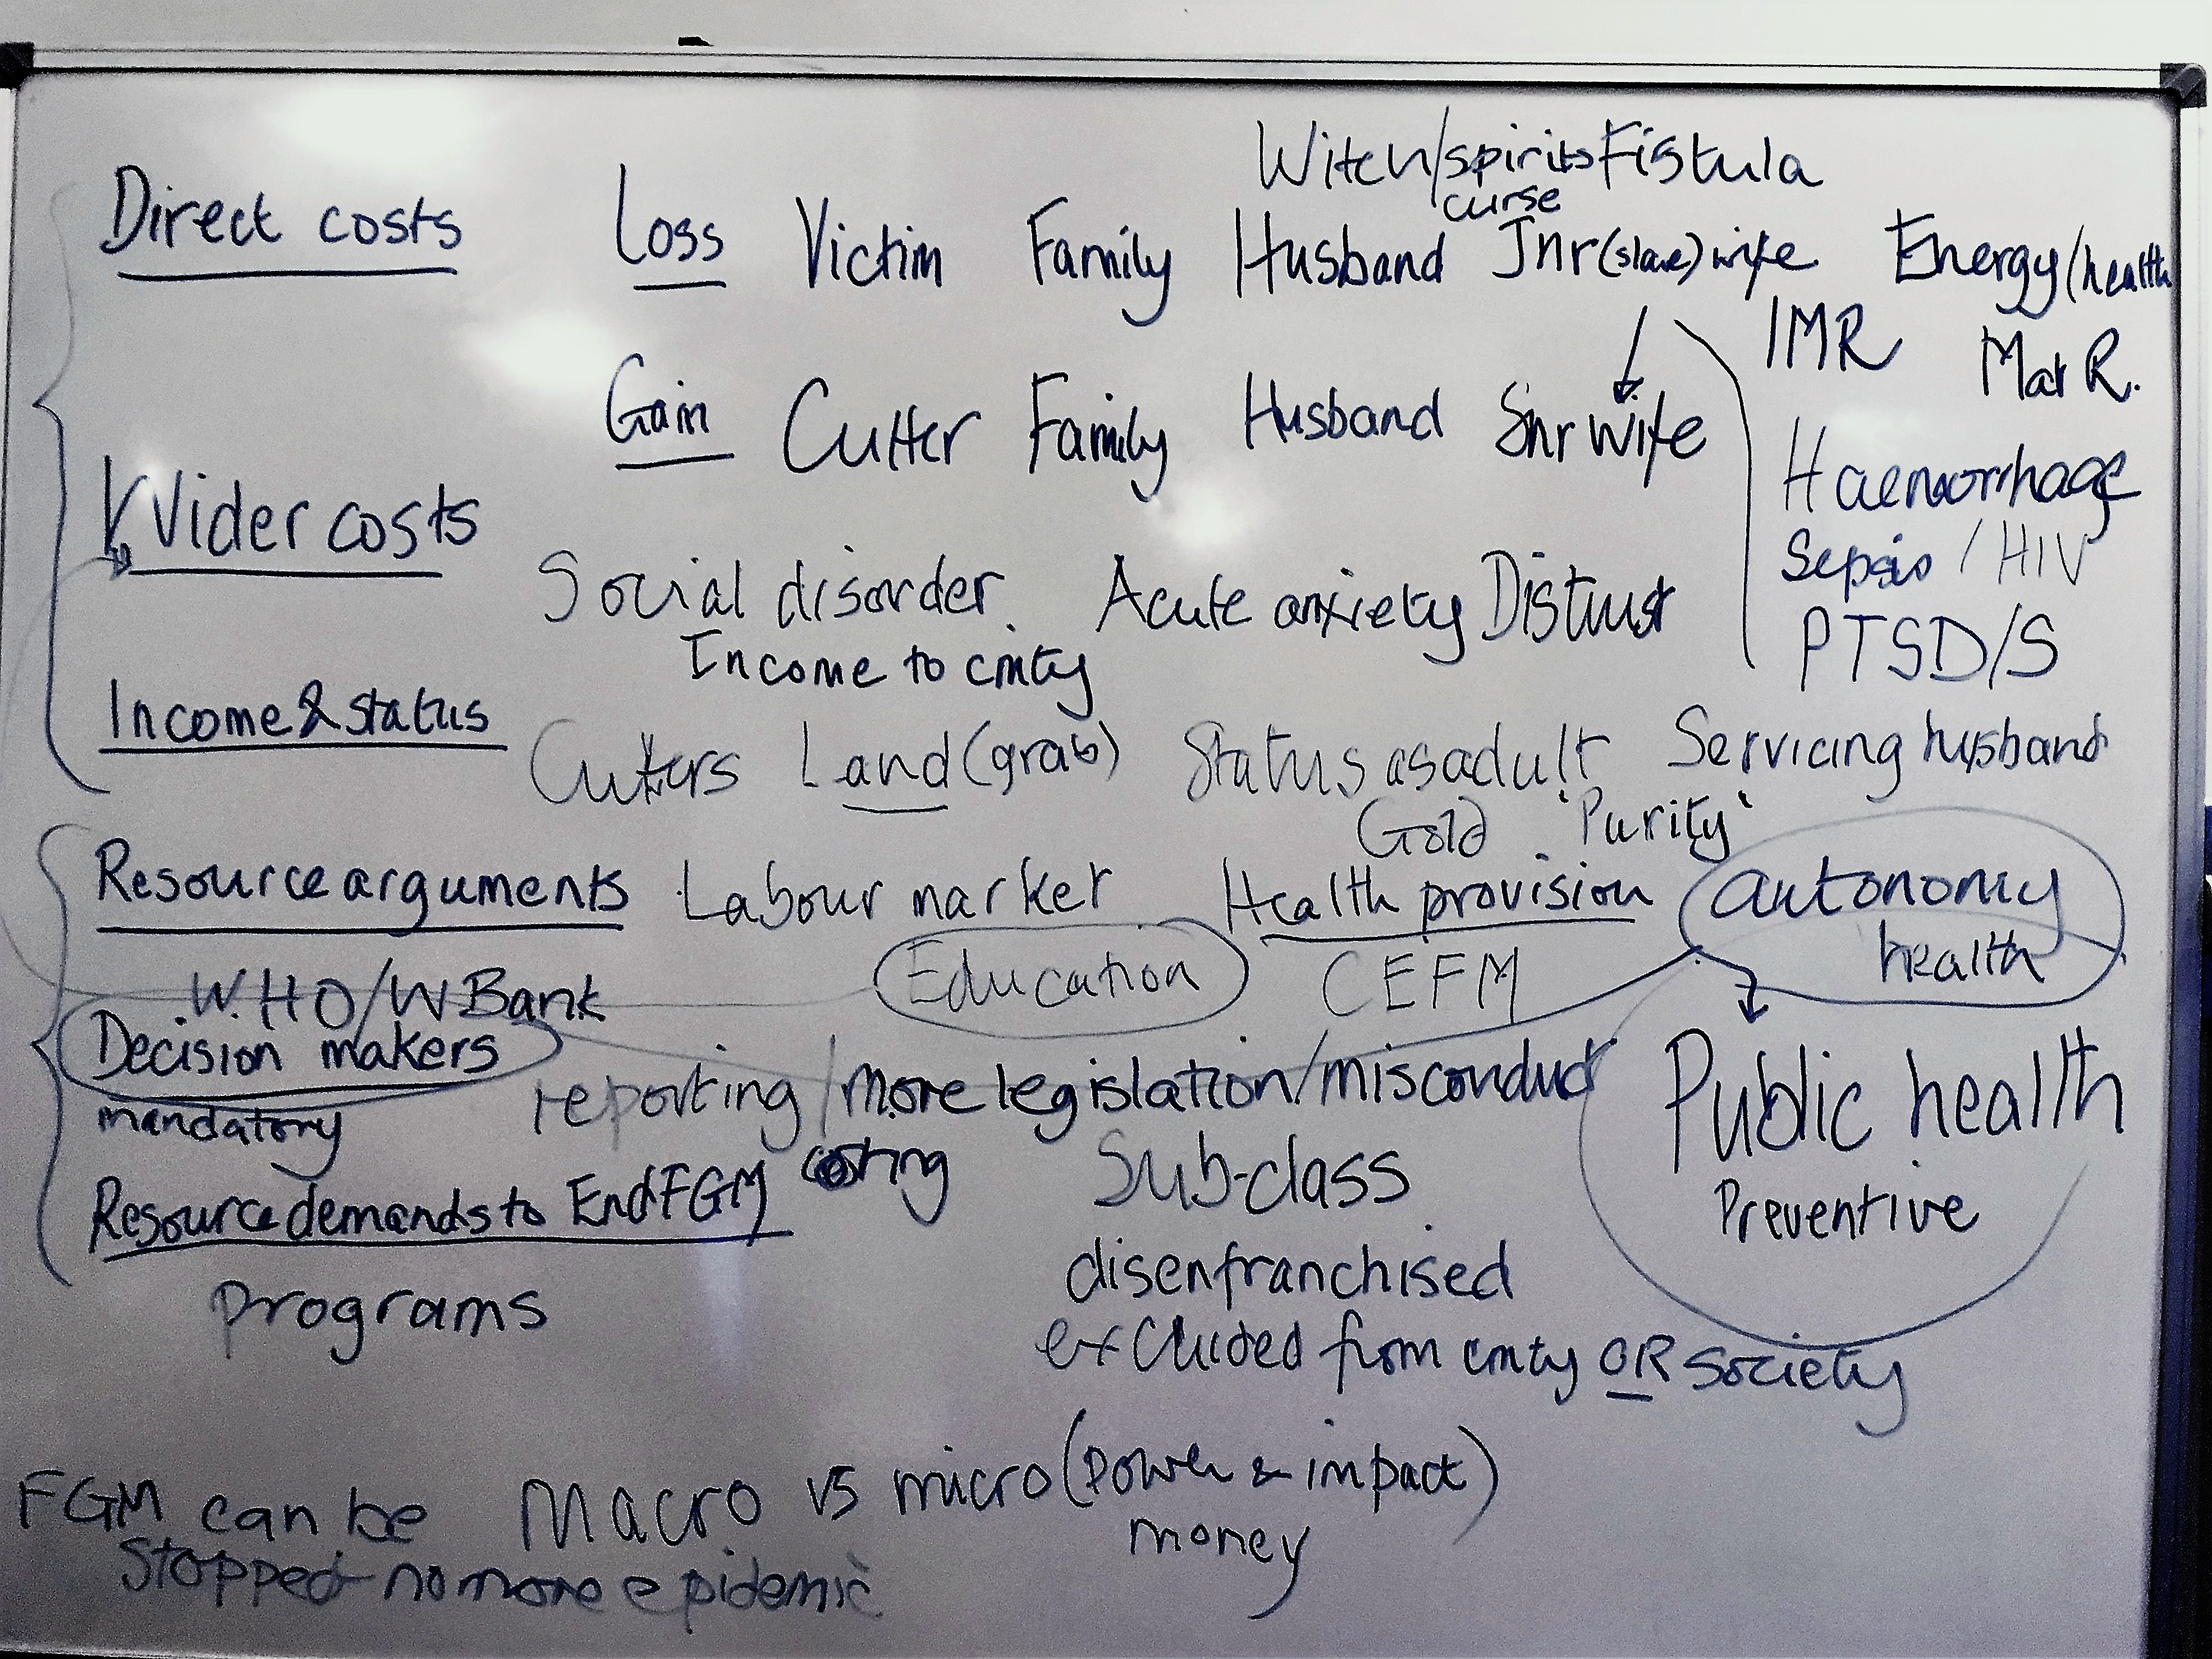 Witch/spirits Fistula
curse
Direct costs Loss Victim Family Husband Jnr (slave) wife Energy/health
IMR Mat R.
Gain Cutter Family Husband Snr wife
Haemorrhage
Wider costs
Sepsis / HIV
Social disorder Acute anxiety Distrust
PTSD/S
Income to cmty
Income & status
Cutters Land (grab) Status as adult Servicing husband
Gold 'Purity'
Resource arguments Labour market Health provision autonomy
health
WHO/W Bank Education CEFM
Decision makers
reporting / more legislation/misconduct Public health
mandatory
costing Sub-class
Resource demands to End FGM Preventive
disenfranchised
programs
excluded from cmty OR society
Macro vs micro (power & impact)
FGM can be money
stopped - no more epidemic